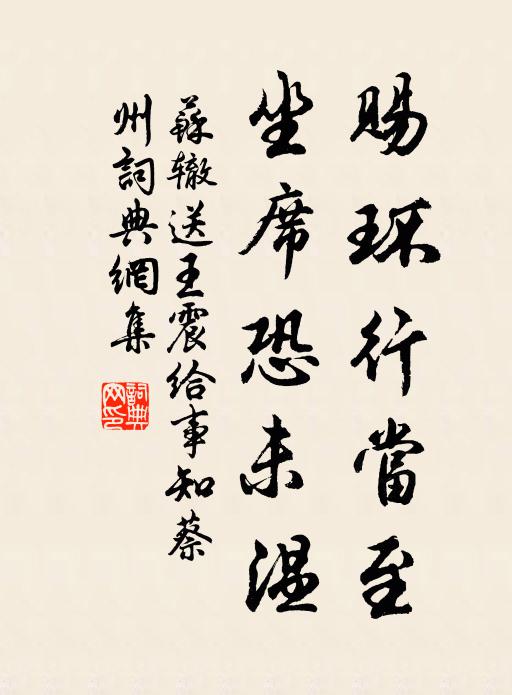 賜环行當至
坐席恐未温
蘇辙送王震给事知蔡
州詞典網集
詞典网印